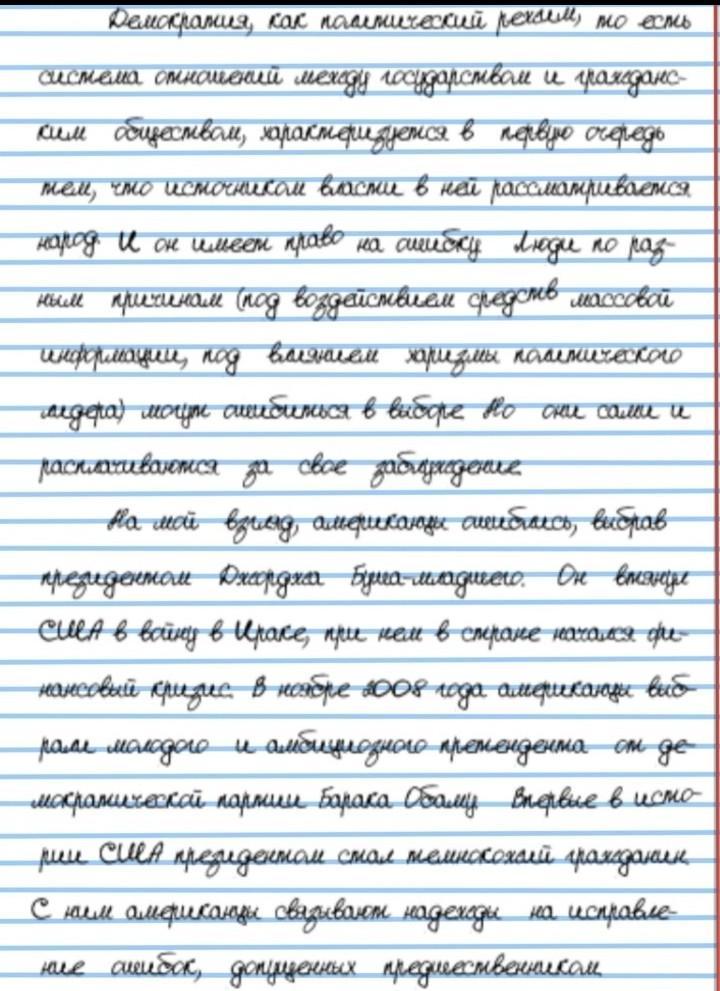 Демократия, как политический режим, то есть
система отношений между государством и гражданс-
ким обществом, характеризуется в первую очередь
тем, что источником власти в ней рассматривается
народ. И он имеет право на ошибку Люди по раз-
ным причинам (под воздействием средств массовой
информации, под влиянием харизмы политического
лидера) могут ошибиться в выборе Но они сами и
расплачиваются за свое заблуждение
На мой взгляд, американцы ошиблись, выбрав
президентом Джорджа Буша-младшего. Он втянул
США в войну в Ираке, при нем в стране начался фи-
нансовый кризис. В ноябре 2008 года американцы выб-
рали молодого и амбициозного претендента от де-
мократической партии Барака Обаму Впервые в исто-
рии США президентом стал темнокожий гражданин.
С ним американцы связывают надежды на исправле-
ние ошибок, допущенных предшественником